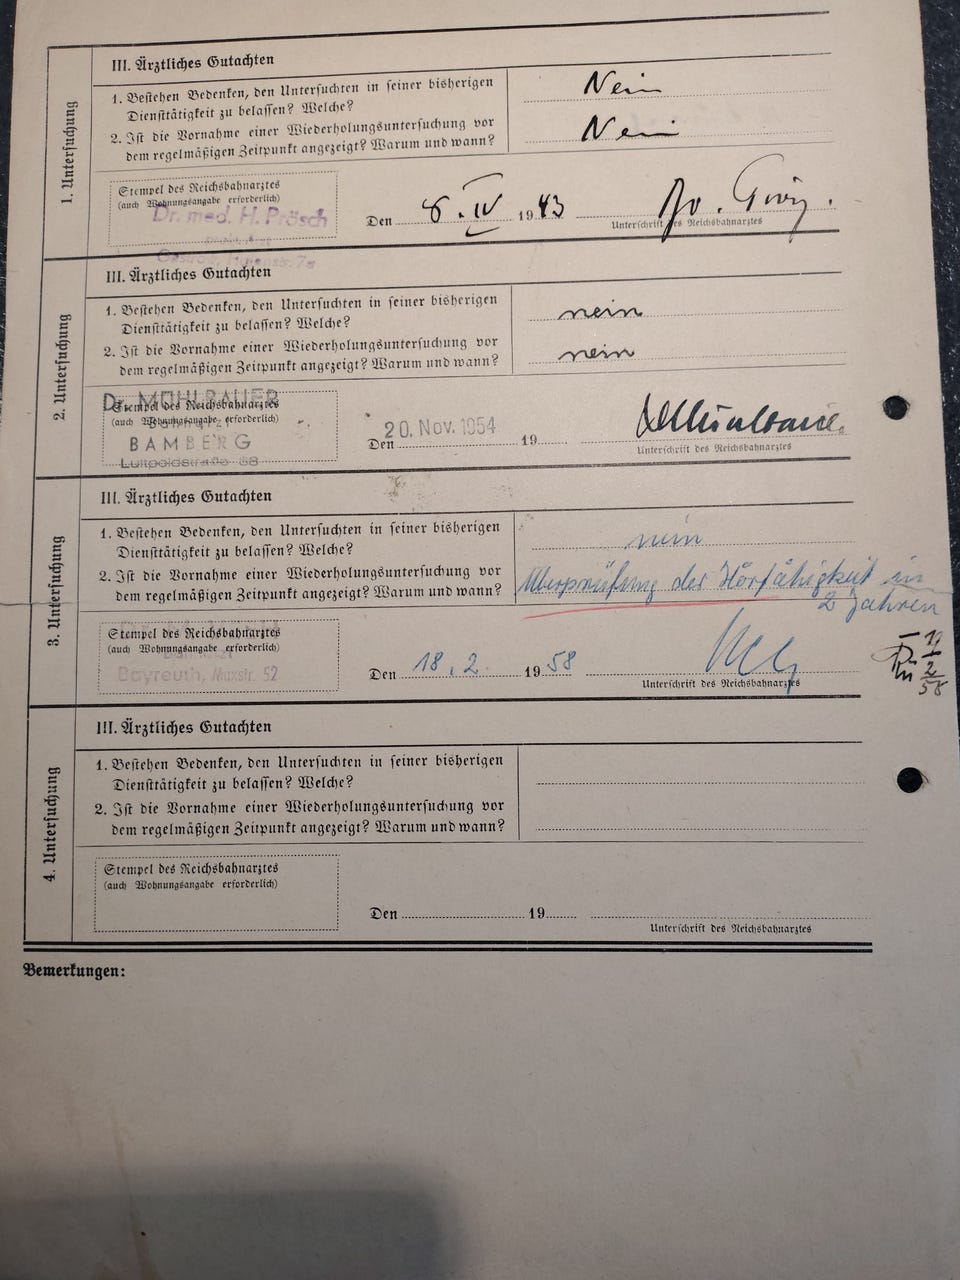 1. Untersuchung
III. Ärztliches Gutachten
1. Bestehen Bedenken, den Untersuchten in seiner bisherigen
Diensttätigkeit zu belassen? Welche?
Nein
2. Ist die Vornahme einer Wiederholungsuntersuchung vor
dem regelmäßigen Zeitpunkt angezeigt? Warum und wann?
Nein
Stempel des Reichsbahnarztes
(auch Wohnungsangabe erforderlich)
Dr. med. H. Prösch
Den 8. IV 1943
Unterschrift des Reichsbahnarztes
2. Untersuchung
III. Ärztliches Gutachten
1. Bestehen Bedenken, den Untersuchten in seiner bisherigen
Diensttätigkeit zu belassen? Welche?
nein
2. Ist die Vornahme einer Wiederholungsuntersuchung vor
dem regelmäßigen Zeitpunkt angezeigt? Warum und wann?
nein
Dr. MÜHLBAUER
Stempel des Reichsbahnarztes
(auch Wohnungsangabe erforderlich)
BAMBERG
Luitpoldstraße
Den 20. Nov. 1954 19
Unterschrift des Reichsbahnarztes
3. Untersuchung
III. Ärztliches Gutachten
1. Bestehen Bedenken, den Untersuchten in seiner bisherigen
Diensttätigkeit zu belassen? Welche?
nein
2. Ist die Vornahme einer Wiederholungsuntersuchung vor
dem regelmäßigen Zeitpunkt angezeigt? Warum und wann?
Überprüfung der Hörfähigkeit in
2 Jahren
Stempel des Reichsbahnarztes
(auch Wohnungsangabe erforderlich)
Bayreuth, Maxstr. 52
Den 18.2. 1958
Unterschrift des Reichsbahnarztes
4. Untersuchung
III. Ärztliches Gutachten
1. Bestehen Bedenken, den Untersuchten in seiner bisherigen
Diensttätigkeit zu belassen? Welche?
2. Ist die Vornahme einer Wiederholungsuntersuchung vor
dem regelmäßigen Zeitpunkt angezeigt? Warum und wann?
Stempel des Reichsbahnarztes
(auch Wohnungsangabe erforderlich)
Den 19
Unterschrift des Reichsbahnarztes
Bemerkungen: